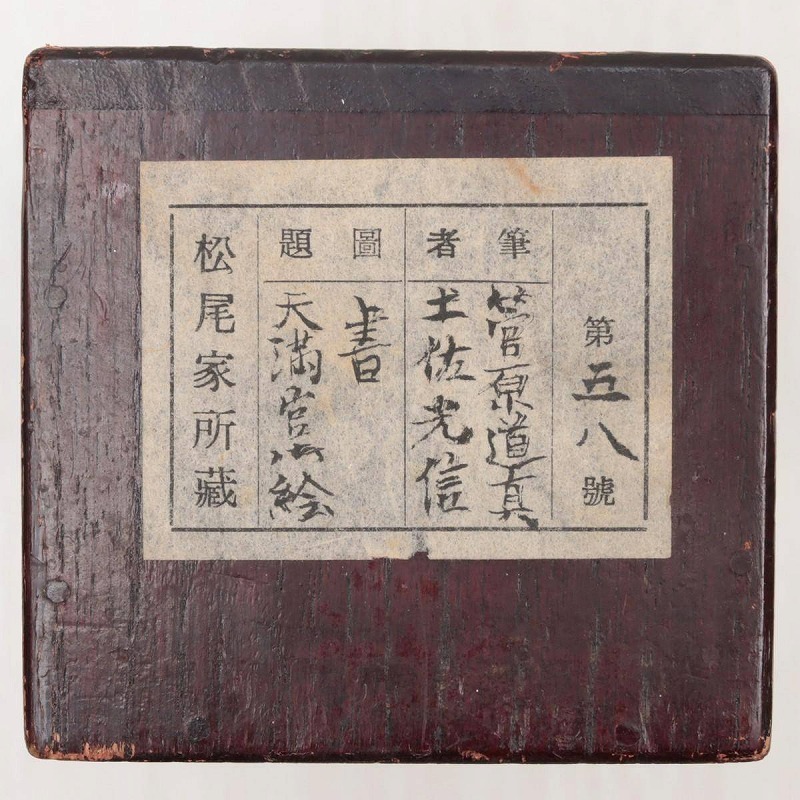 第五八號
筆者
菅原道真
土佐光信
圖題
書
天満宮御絵
松尾家所藏